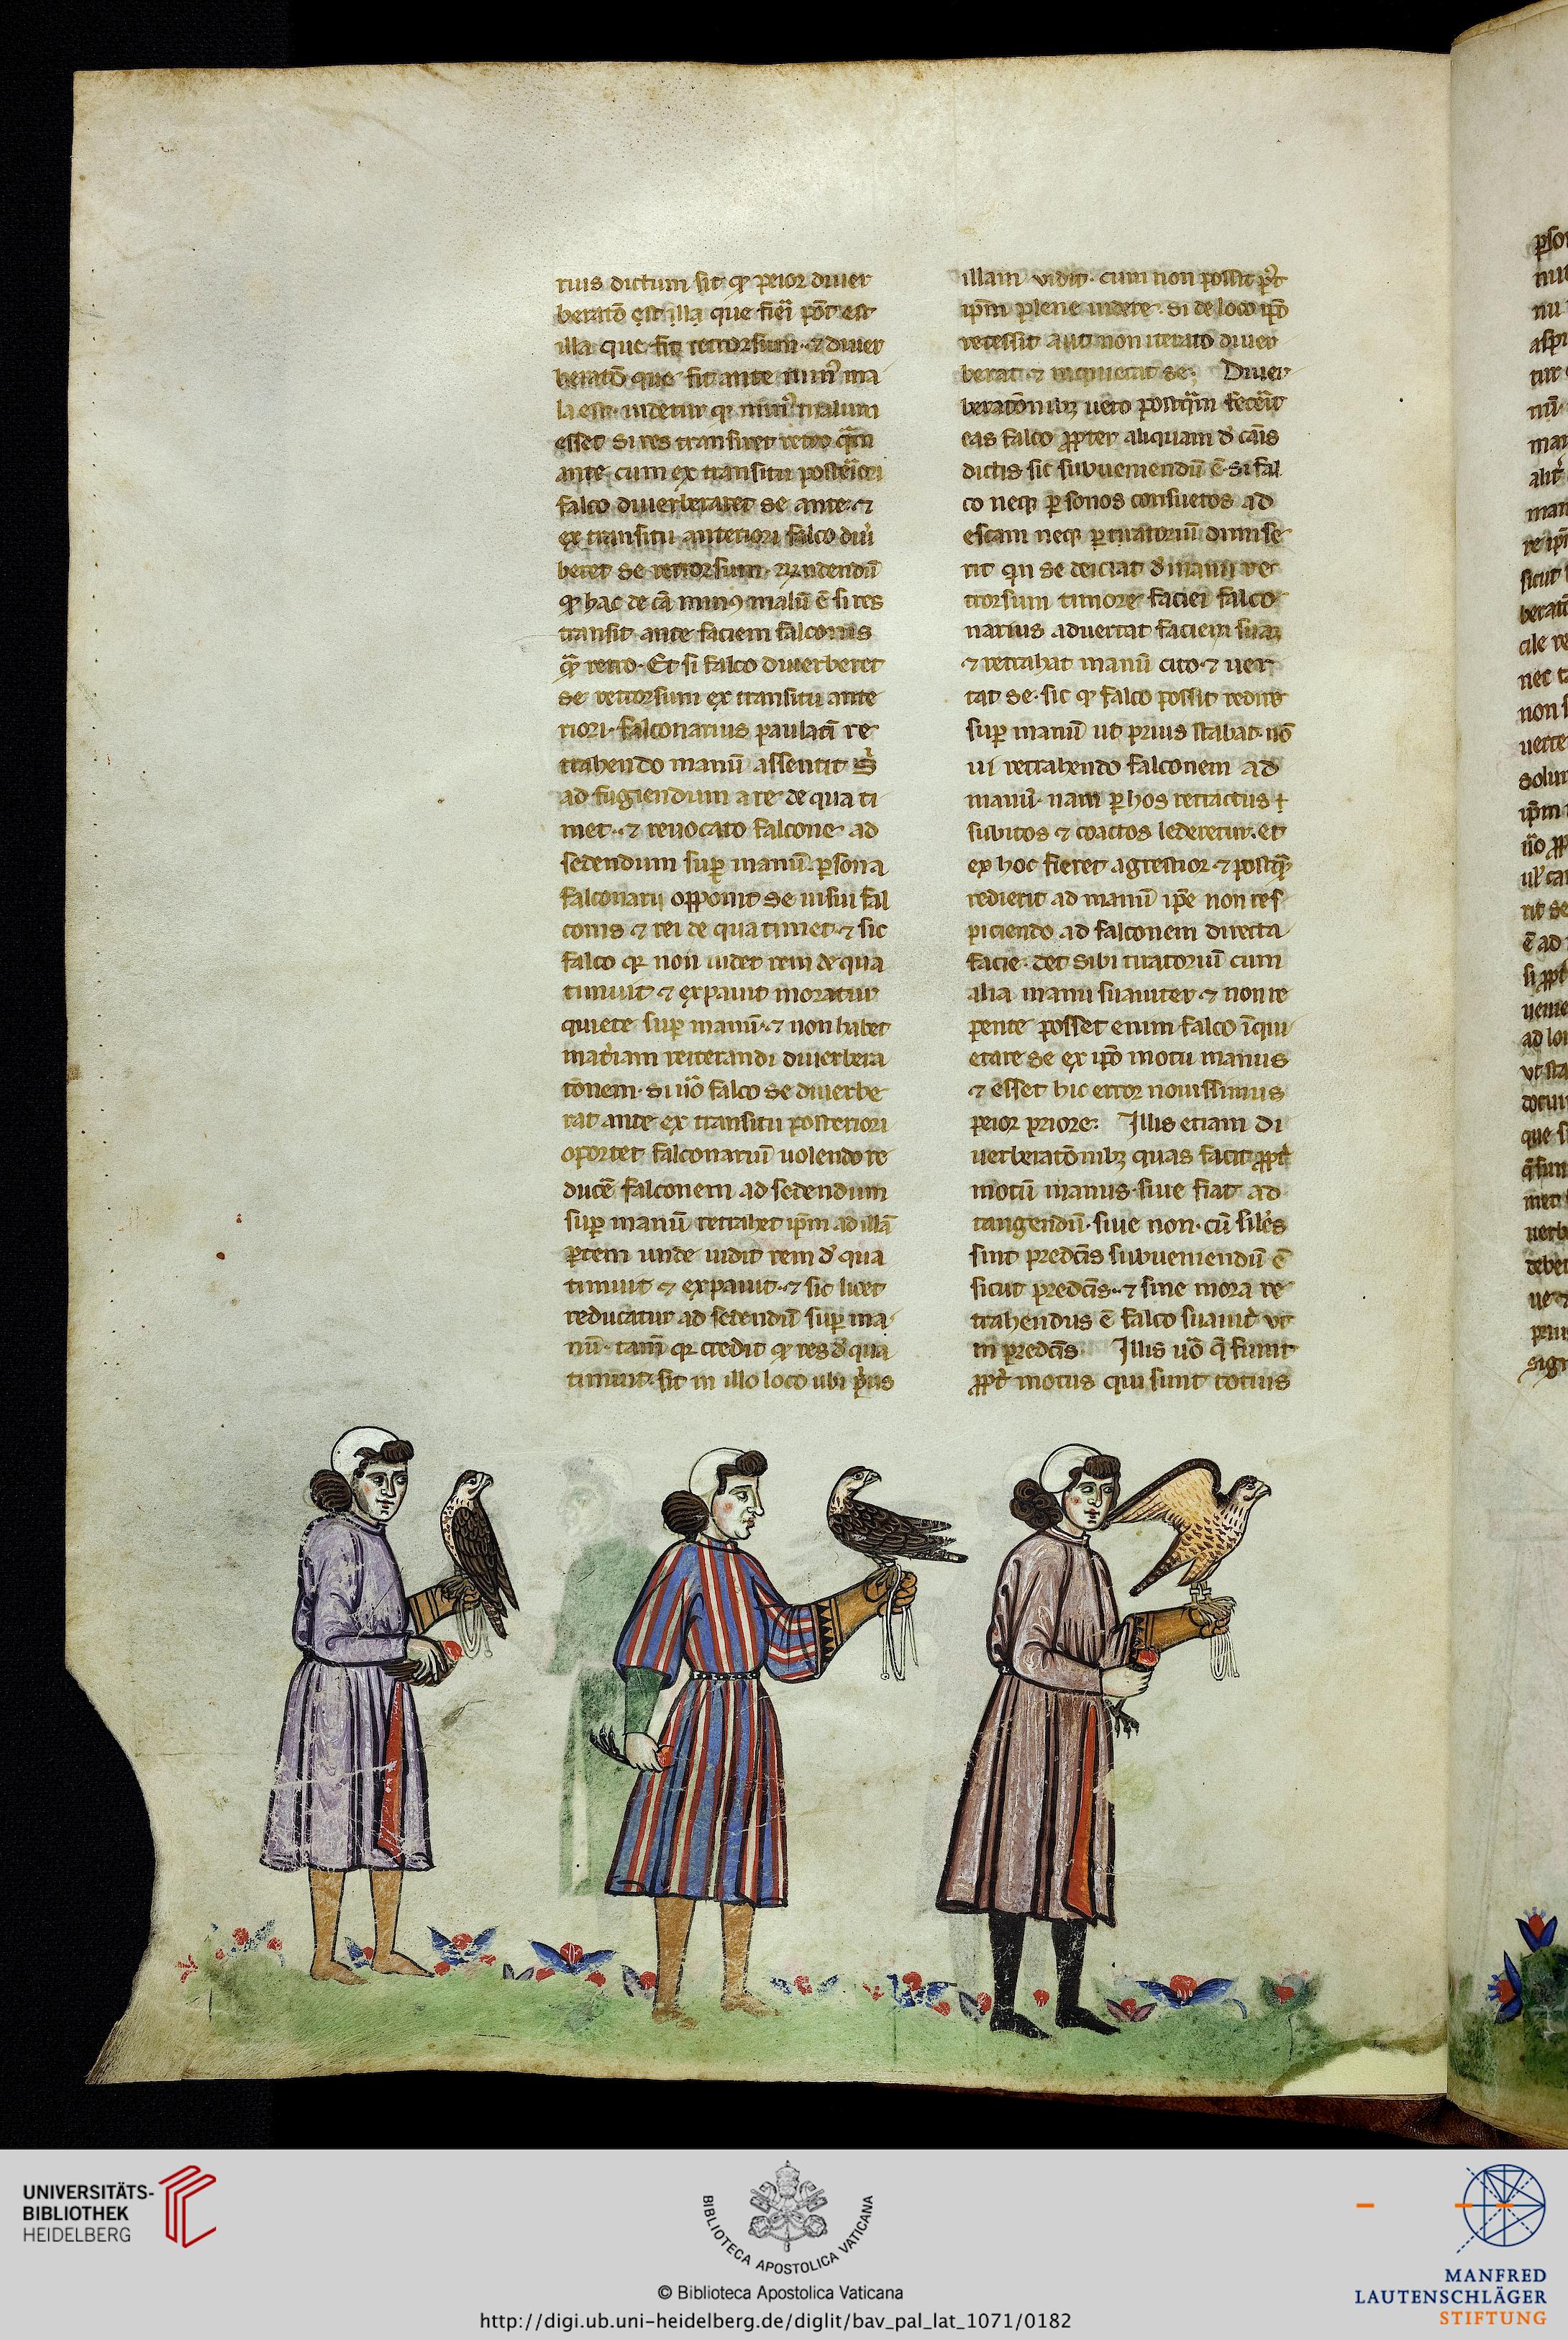 rius dictum sit ꝙ peior diuer
beratō est illa que fieri pōt est
illa que fit retrorsum ⁊ diuer
beratō que fit ante minꝰ ma
la est. uidetur ꝙ minꝰ malum
esset si res transiret retro qͣm
ante. cum ex transitu posteriori
falco diuerberaret se ante. ⁊
ex transitu anteriori falco diũ
beret se retrorsum. dicendū
ꝙ hac de cā minꝰ malū ē si res
transit ante faciem falconis
qͣ retro. Et si falco diuerberet
se retrorsum ex transitu ante
riori. falconarius paulati re
trahendo manū assentit
ad fugiendum a re de qua ti
met. ⁊ reuocato falcone ad
sedendum suꝑ manū. ꝑsona
falconarij opponit se uisui fal
conis ⁊ rei de qua timet. ⁊ sic
falco qꝛ non uidet rem de qua
timuit ⁊ expauit moratur
quiete suꝑ manū. ⁊ non habet
matiam reiterandi diuerbera
tōnem. si uō falco se diuerbe
rat ante ex transitu posteriori
oportet falconariū uolendo re
ducē falconem ad sedendum
suꝑ manū retrahet ip̄m ad illā
ꝑtem unde uidit rem dꝰ qua
timuit ⁊ expauit. ⁊ sic licet
reducatur ad sedendū suꝑ ma
nū. tam̄ qꝛ credit ꝙ res dꝰ qua
timuit. sit in illo loco ubi pͥus
illam vidit. cum non possit
ip̄m plene uidere. si de loco ip̄o
recessit aut non iterato diuer
berat ⁊ inquietat se. Diuer
beratōnibꝫ uero postqͣm fecerit
eas falco ꝓpter aliquam dꝰ cāis
dictis sic subueniendū ē. si fal
co neqꝫ ꝑ sonos consuetos ad
escam neqꝫ ꝑ tiratoriū dimise
rit qn se deiciat dꝰ manu re
trorsum timore faciei falco
narius aduertat faciem suam
⁊ retrahat manū cito. ⁊ uer
tat se. sic ꝙ falco possit redire
suꝑ manū ut prius stabat. nō
ui retrahendo falconem ad
manū. nam ꝑ hos retractus
subitos ⁊ coactos lederetur. et
ex hoc fieret agrestior ⁊ postqͣ
redierit ad manū ip̄e non res
piciendo ad falconem directa
facie. det sibi tiratoriū cum
alia manu suauiter ⁊ non re
pente posset enim falco īqui
etare se ex ip̄o motu manus
⁊ esset hic error nouissimus
peior priore. Illis etiam di
uerberatōnibꝫ quas facit ꝓpt̉
motū manus. siue fiat ad
tangendū. siue non. cū siles
sint predc̄is subueniendū ē
sicut predc̄is. ⁊ sine mora re
trahendus ē falco suauit̉ ut
in predc̄is. Illis uō q̄ fiunt
ꝓpt̉ motus qui sunt totius
UNIVERSITÄTS-
BIBLIOTHEK
HEIDELBERG
BIBLIOTECA APOSTOLICA VATICANA
© Biblioteca Apostolica Vaticana
http://digi.ub.uni-heidelberg.de/diglit/bav_pal_lat_1071/0182
MANFRED
LAUTENSCHLÄGER
STIFTUNG